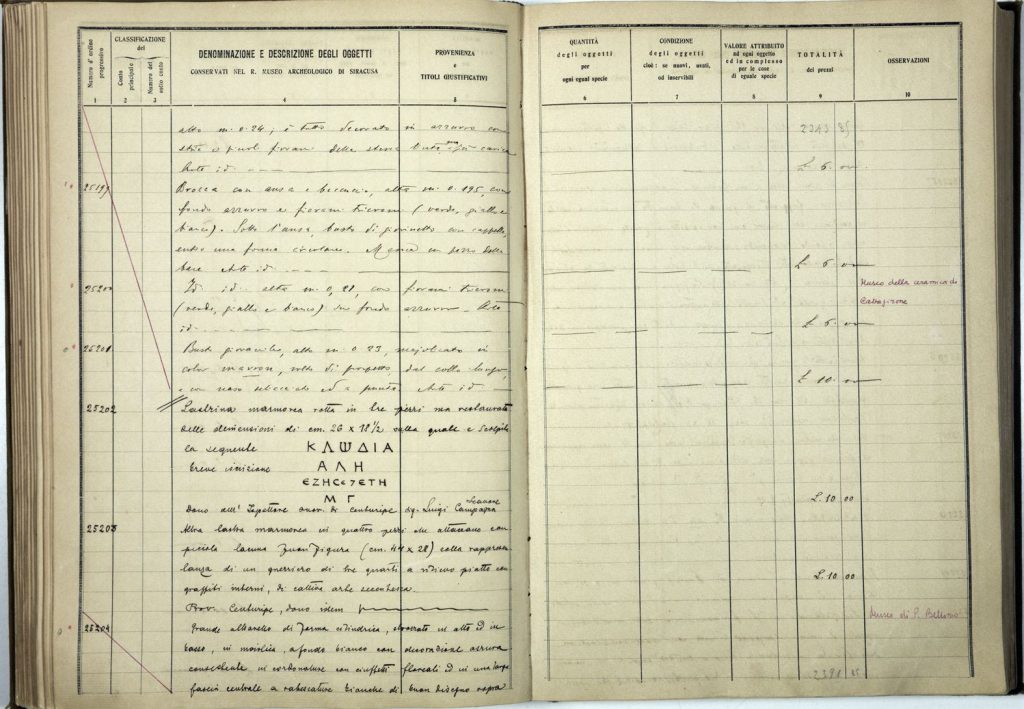 Numero d'ordine progressivo
CLASSIFICAZIONE del
Conto principale
Numero del sotto conto
DENOMINAZIONE E DESCRIZIONE DEGLI OGGETTI
CONSERVATI NEL R. MUSEO ARCHEOLOGICO DI SIRACUSA
PROVENIENZA
e
TITOLI GIUSTIFICATIVI
1 2 3 4 5
alto m. 0.24; è tutto decorato in azzurro con
della stessa
Arte id.
25199 Brocca con ansa e beccuccio, alta m. 0.195, con
fondo azzurro e fiorami tricromi (verde, giallo e
bianco). Sotto l'ansa, busto di giovinetto con cappello,
entro una forma circolare. Manca un pezzo della
base Arte id.
25200 Id. id. alta m. 0,21, con fiorami tricromi
(verde, giallo e bianco) su fondo azzurro. Arte
id.
25201 Busto giovanile, alto m. 0.23, maiolicato in
color marrone, volto di prospetto dal collo lungo,
e con naso schiacciato ed a punta. Arte id.
25202 Lastrina marmorea rotta in tre pezzi ma restaurata
delle dimensioni di cm. 26 x 18½ sulla quale è scolpita
la seguente ΚΛΩΔΙΑ
breve iscrizione ΑΛΗ
ΕΖΗСЄ7ΕΤΗ
Μ Γ
Dono dell'Ispettore onor. di Centuripe sig. Luigi Campagna
25203 Altra lastra marmorea in quattro pezzi che attaccano con
piccola lacuna (cm. 44 x 28) colla rappresen
tanza di un guerriero di tre quarti a rilievo piatto con
graffiti interni, di cattiva arte secentesca.
Prov. Centuripe, dono idem
25204 Grande albarello di forma cilindrica, in alto ed in
basso, in maiolica, a fondo bianco con decorazione azzurra
consistente in cordonature con ciuffetti floreali ed in una larga
fascia centrale a rabescature bianche di buon disegno sopra
QUANTITÀ
degli oggetti
per
ogni egual specie
CONDIZIONE
degli oggetti
cioè: se nuovi, usati,
od inservibili
VALORE ATTRIBUITO
ad ogni oggetto
ed in complesso
per le cose
di eguale specie
TOTALITÀ
dei prezzi
OSSERVAZIONI
6 7 8 9 10
2343 85
£ 6 00
£ 6 00
Museo della ceramica di
Caltagirone
£ 6 00
£ 10 00
£. 10 00
£. 10 00
Museo di P. Bellomo